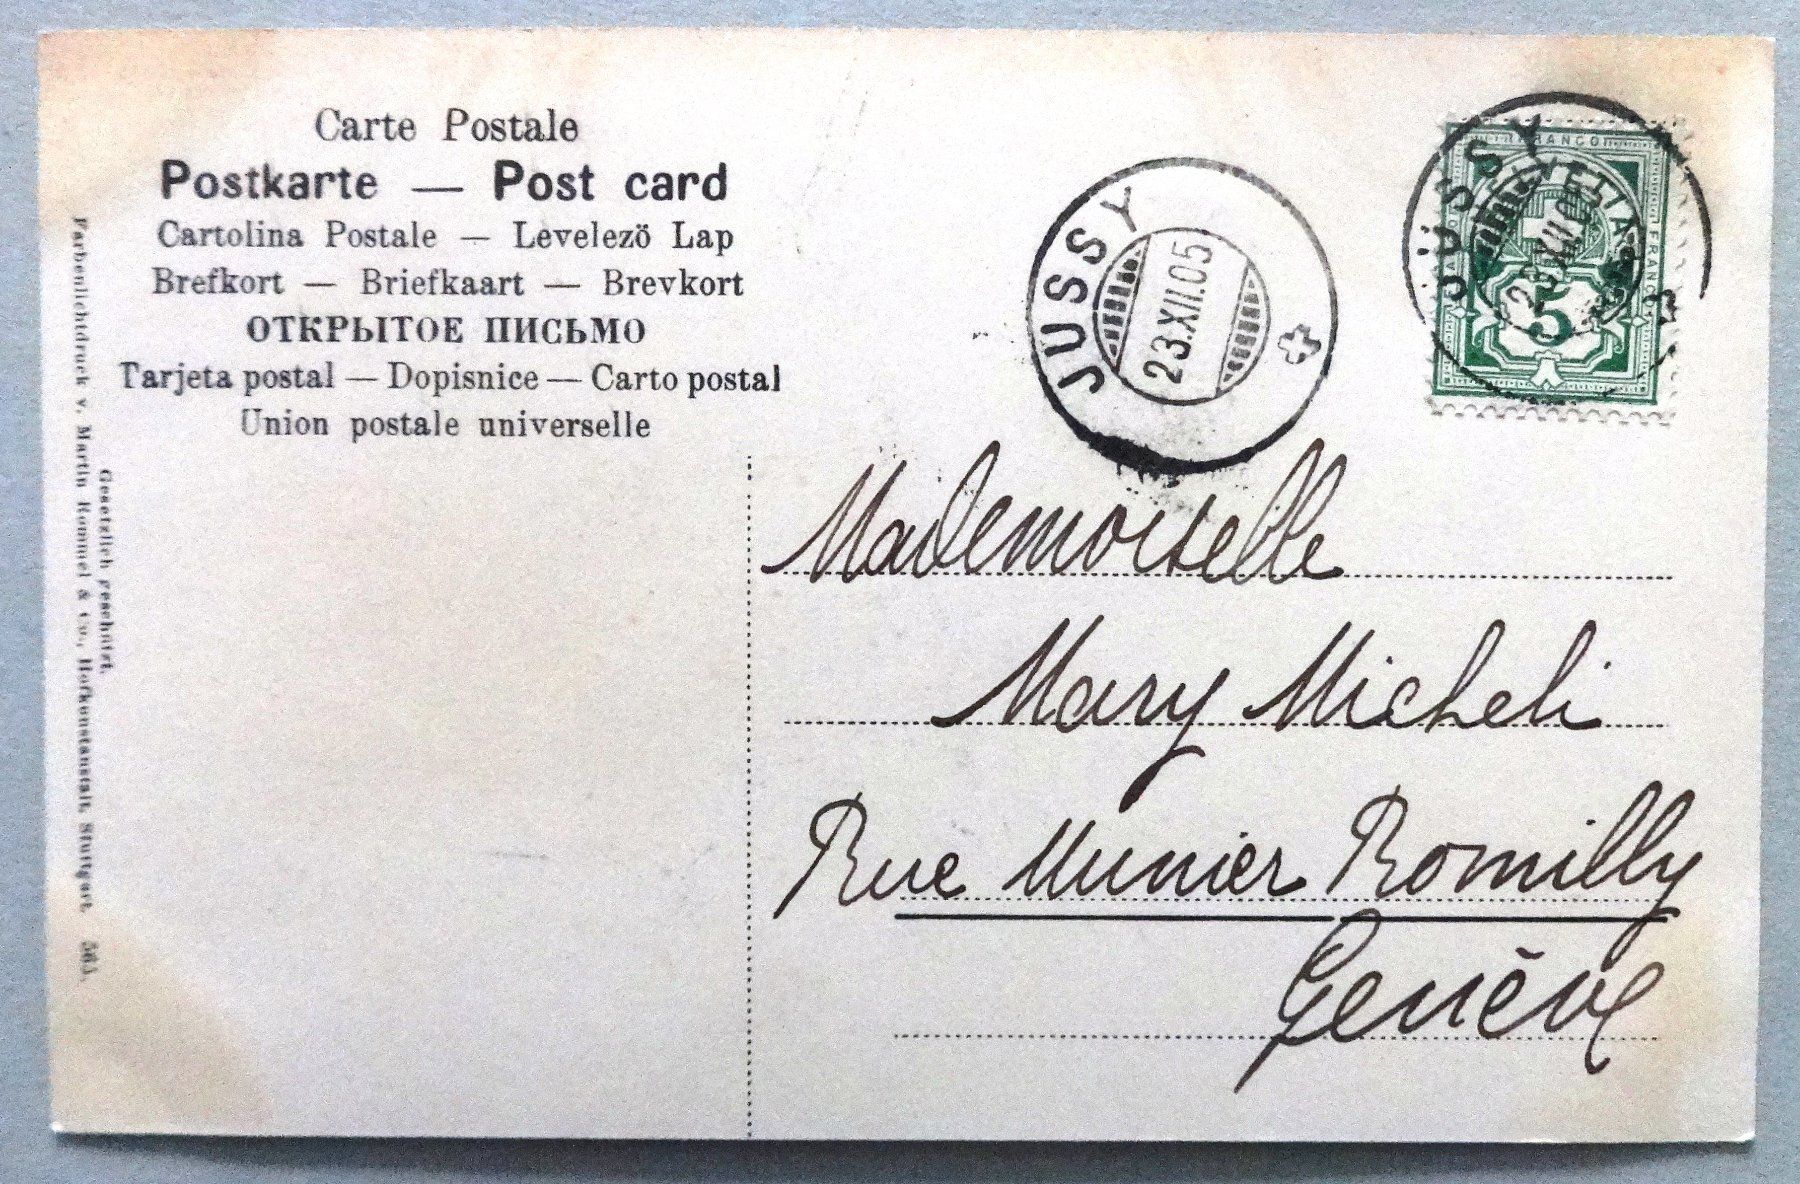 Carte Postale
Postkarte — Post card
Cartolina Postale — Levelezö Lap
Brefkort — Briefkaart — Brevkort
ОТКРЫТОЕ ПИСЬМО
Tarjeta postal — Dopisnice — Carto postal
Union postale universelle
Gesetzlich geschützt.
Farbenlichtdruck v. Martin Rommel & Co., Hofkunstanstalt, Stuttgart.
JUSSY
23.XII.05
JUSSY
XII.05
FRANCO
HELVETIA
FRANCO
5
Mademoiselle
Mary Micheli
Rue Munier Romilly
Genève